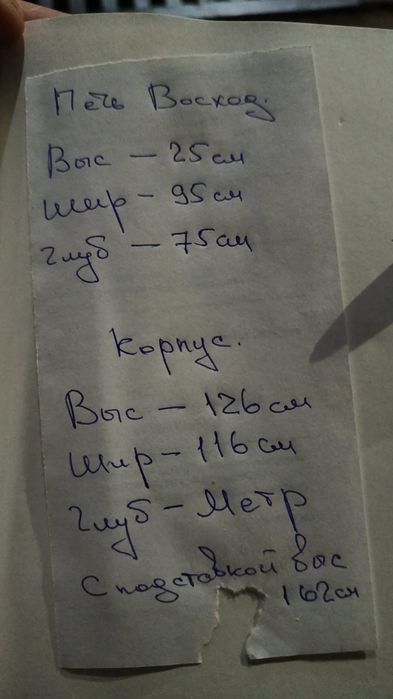 Печь Восход.
Выс – 25 см
Шир – 95 см
Глуб – 75 см
Корпус.
Выс – 126 см
Шир – 116 см
Глуб – Метр
С подставкой выс
162 см